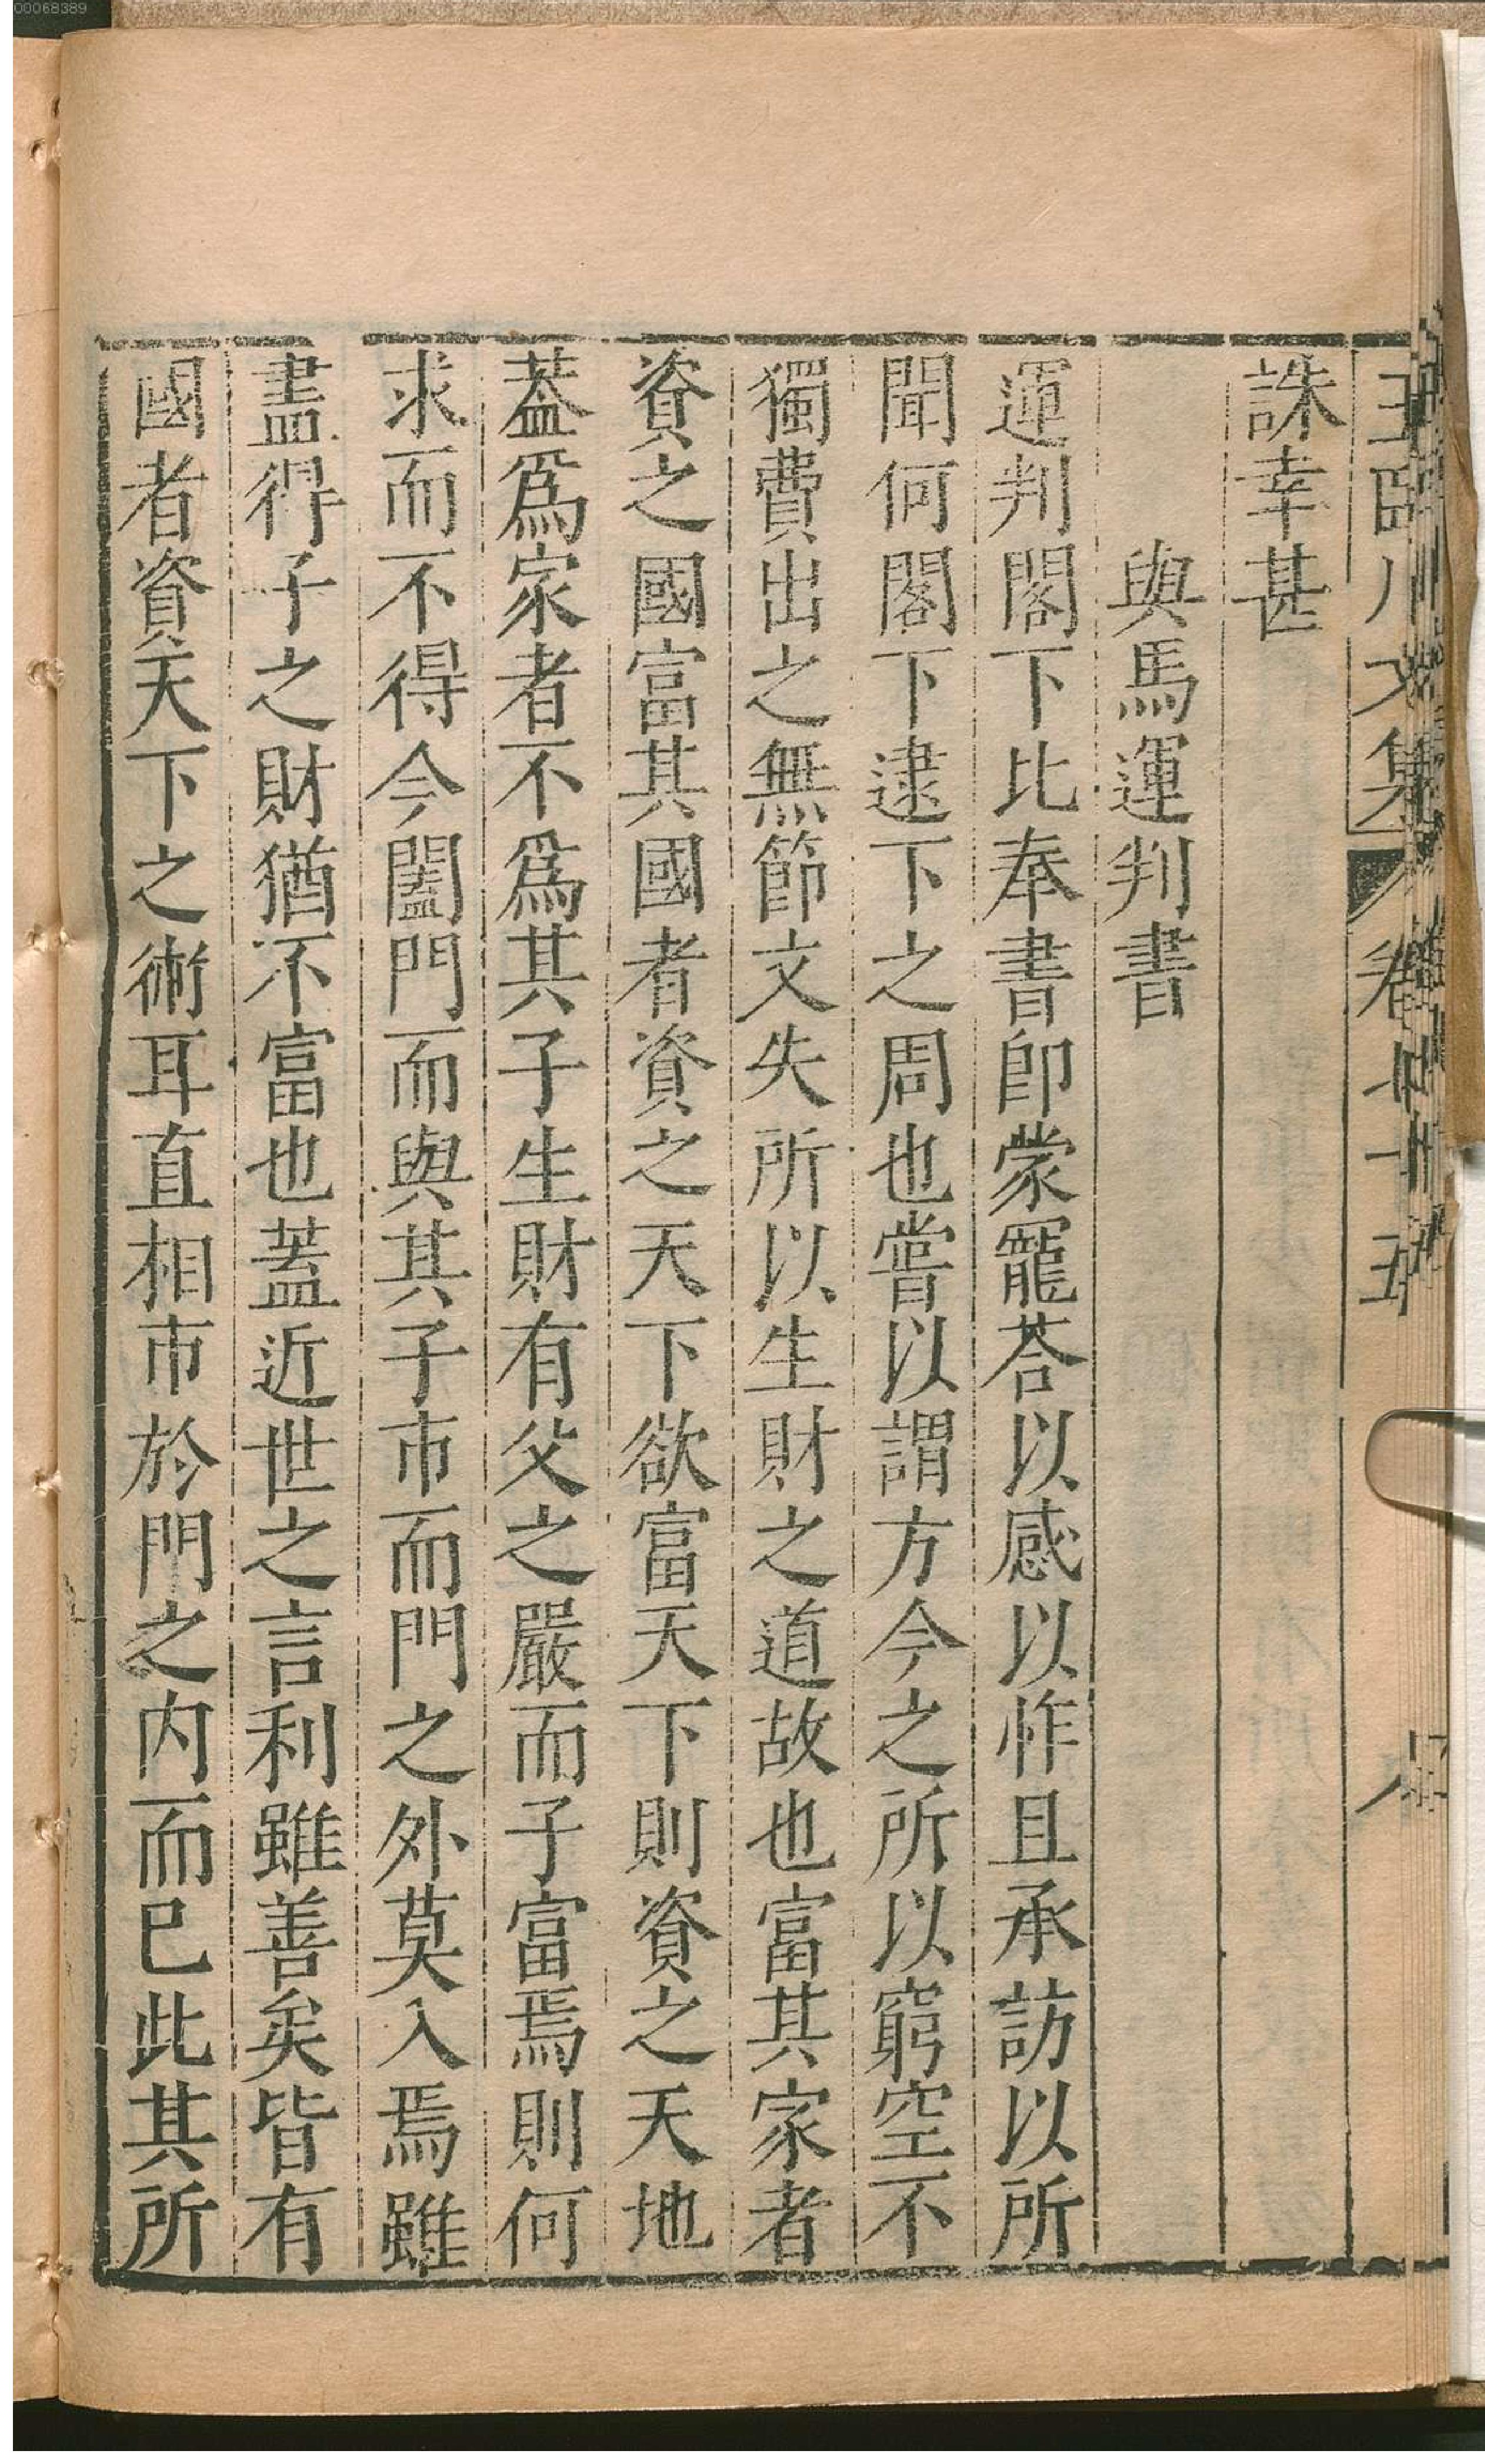 00068389
誅幸甚
與馬運判書
運判閤下比奉書卽蒙寵荅以感以怍且承訪以所
聞何閤下逮下之周也嘗以謂方今之所以窮空不
獨費出之無節文失所以生財之道故也富其家者
資之國富其國者資之天下欲富天下則資之天地
葢爲家者不爲其子生財有父之嚴而子富焉則何
求而不得今闔門而與其子市而門之外莫入焉雖
盡得子之財猶不富也蓋近世之言利雖善矣皆有
國者資天下之術耳直相市於門之内而已此其所